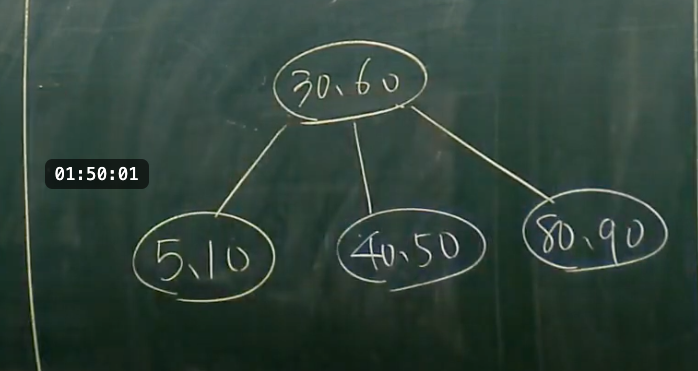 30、60
01:50:01
5、10
40、50
80、90